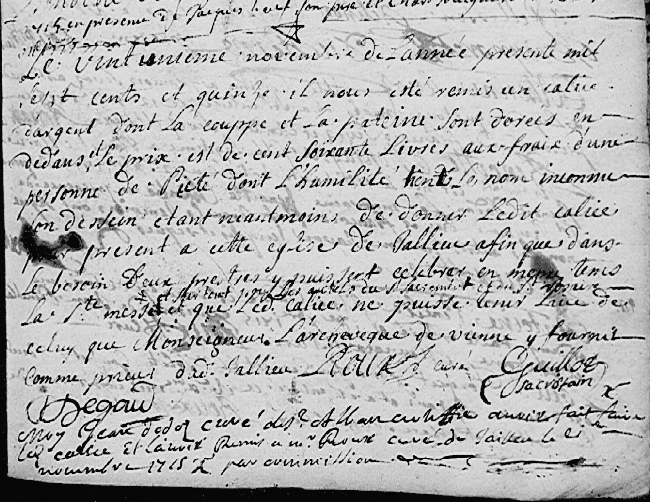 1715 en presence de Jacques
Le vintunieme novembre de l'année presente mil
sept cents et quinze il nous esté remis un calice
d'argent dont la couppe et la pateine sont dorées en
dedans, le prix est de cent soixante Livres aux fraix d'une
personne de Pieté dont l'humilité tient le nom inconnu
son dessein etant neantmoins de donner ledit calice
par present a cette eglise de Jallieu afin que dans
le besoin deux prestres y puissent celebrer en meme tems
surtout pour les du st sacrement et du st rosaire
la Ste messe et que led. calice ne puisse tenir lieu de
celuy que Monseigneur L'archeveque de vienne y fournit
comme prieur dud. Jallieu Roux curé Guillot
sacristain
Degau
Moy Jean dodoz curé de st Alban certiffie avoir fait faire
led calice et l'avoir Remis a mr Roux curé de Jallieu le 21e
novembre 1715 par commission